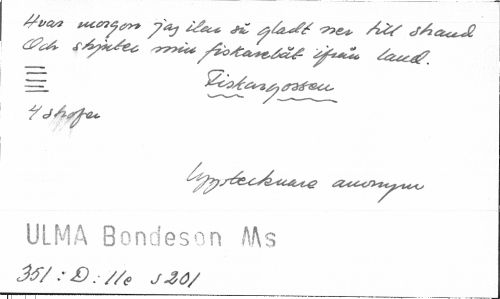 Hvar morgon jag ilar så gladt ner till strand
Och skjuter min fiskarebåt ifrån land.
Fiskargossen
4 strofer
Upptecknare anonym
ULMA Bondeson Ms
351:D:11e s201